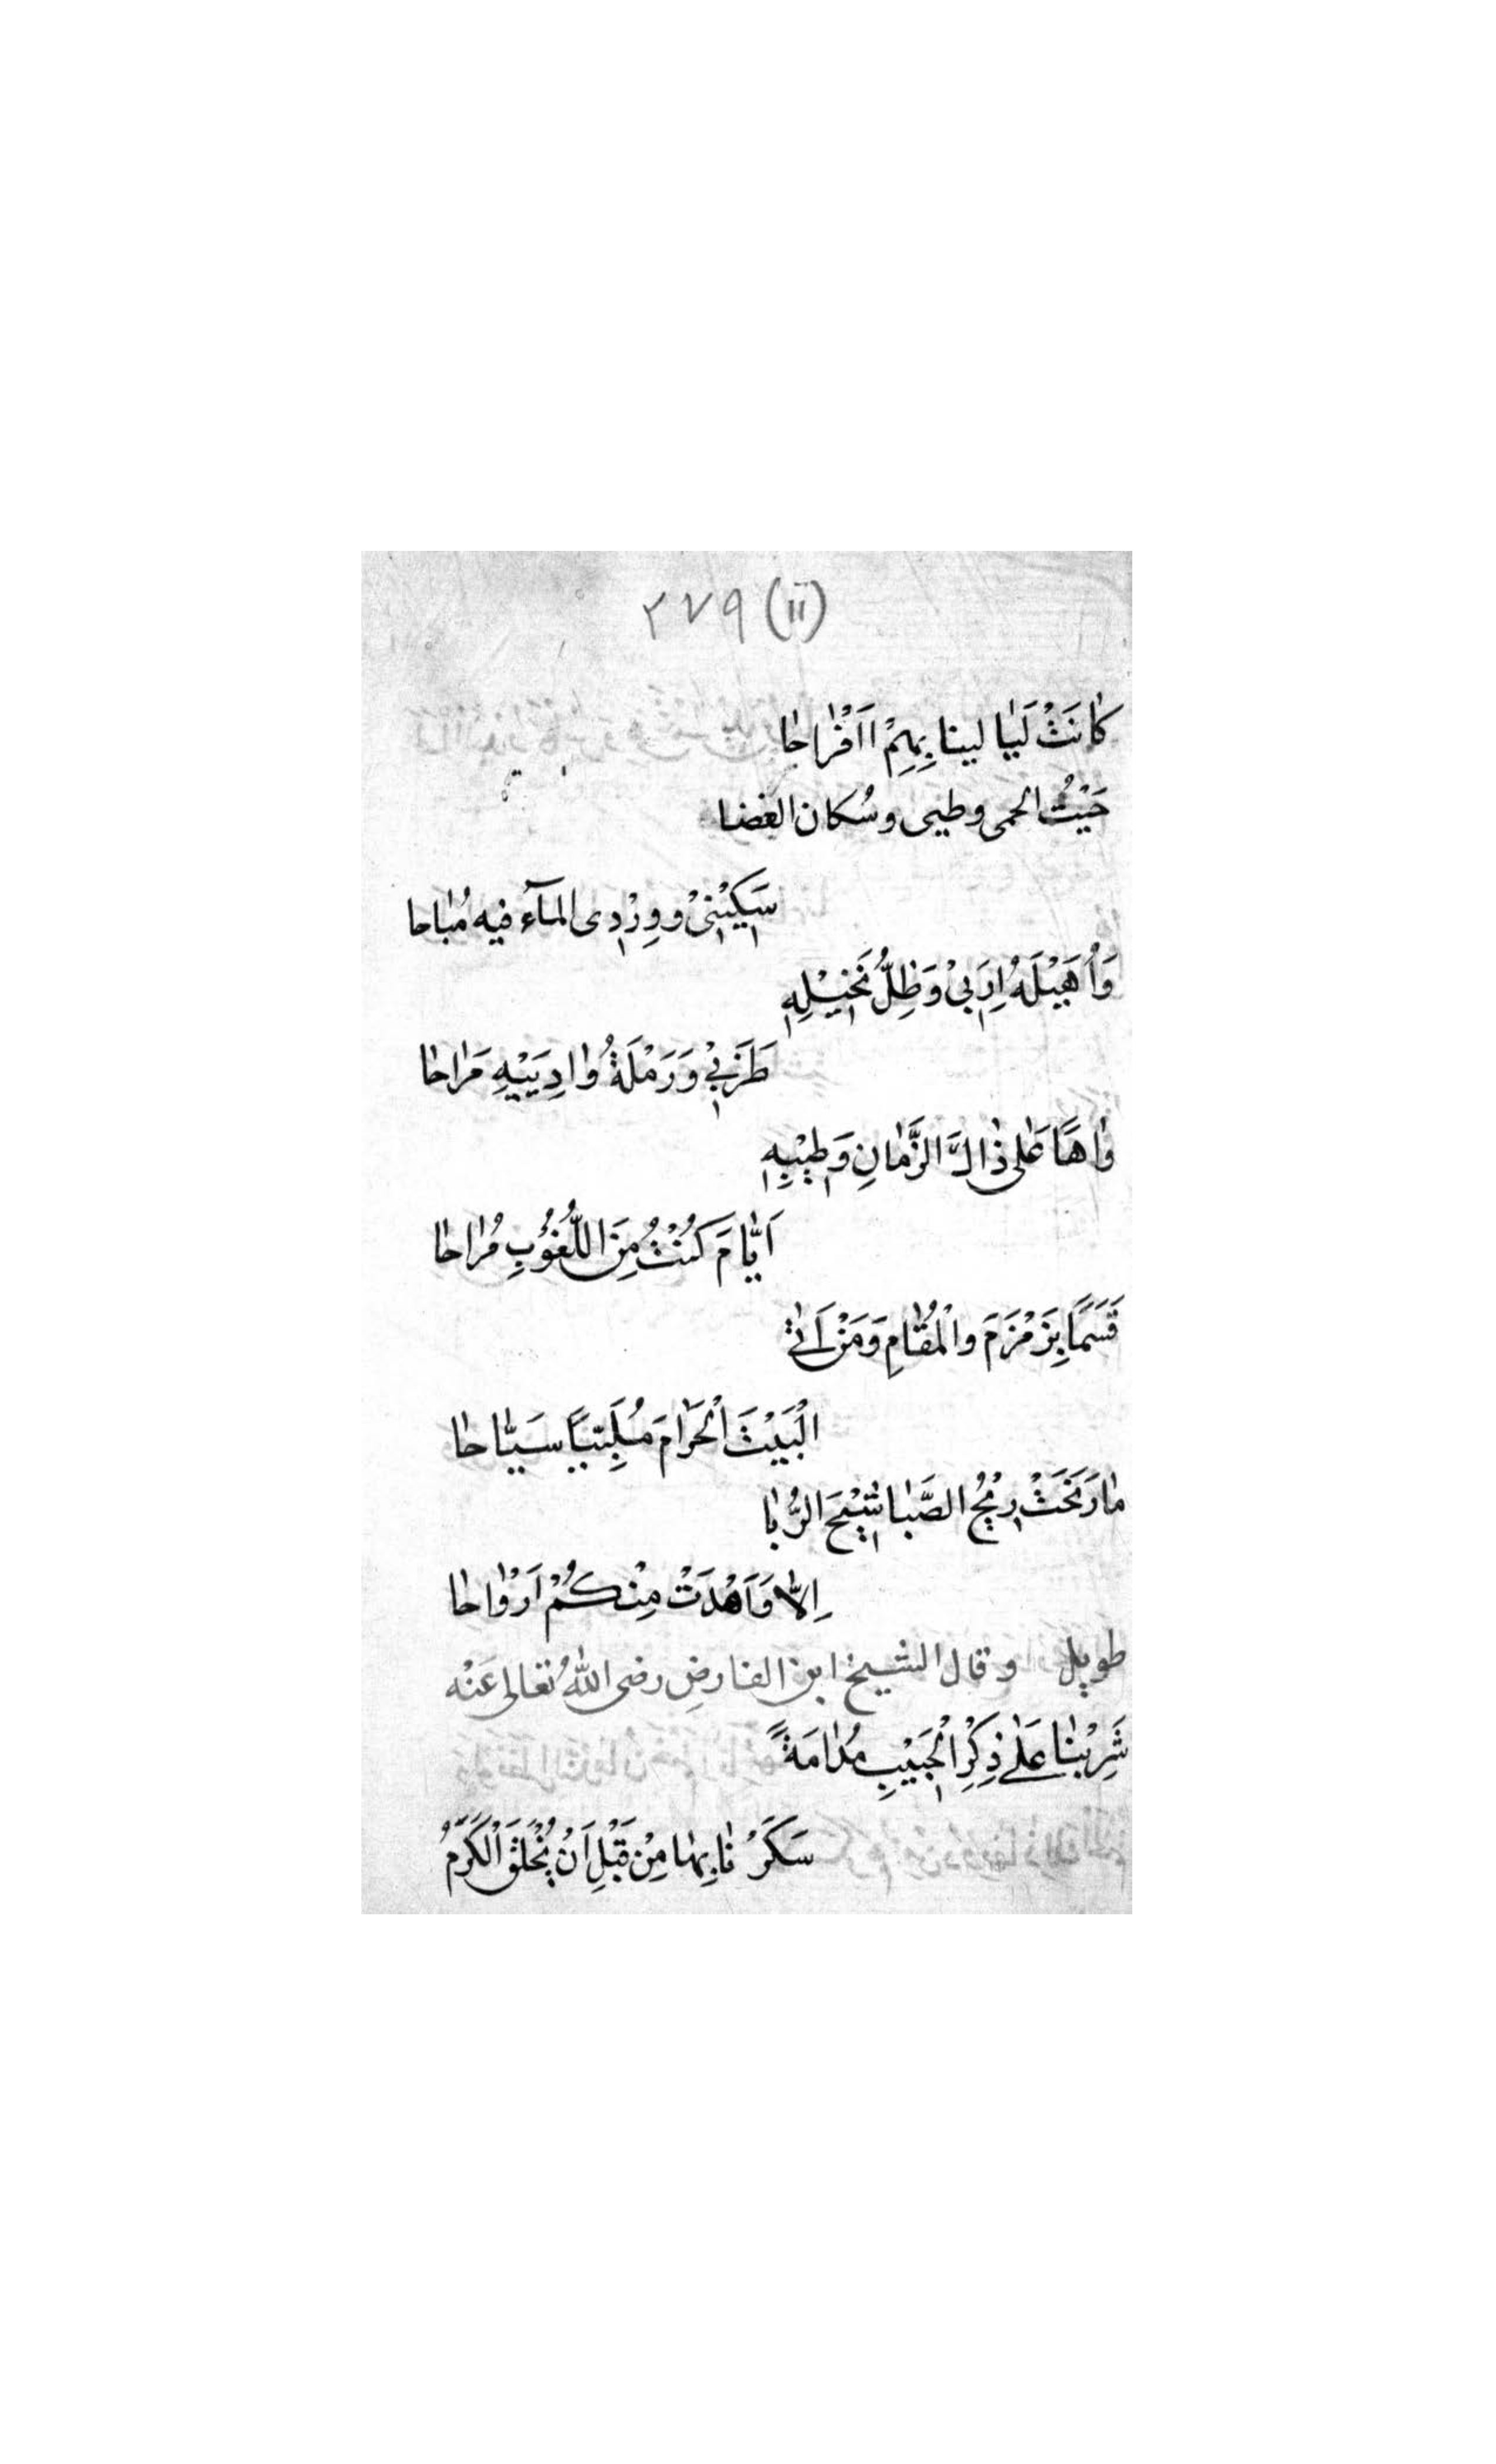 ٢٧٩ (١١)
كَانَتْ لَيَالِينَا بِهِمْ اَفْرَاحَا
حَيْثُ الحمى وطيى وسُكان الغضا
سَكَنِيْ وَوِرْدِى المآء فيه مُبَاحا
وَاُهَيْلَهُ اِرَبِيْ وَظِلُّ نَخِيْلِهِ
طَرَبِيْ وَرَمْلَةُ وَادِيَيْهِ مَرَاحَا
وَاهًا عَلٰى ذَاكَ الزَّمَانِ وَطِيْبِهِ
اَيَّامَ كُنْتُ مِنَ اللُّغُوْبِ مُرَاحَا
قَسَمًا بِزَمْزَمَ والْمُقَامِ وَمَنْ اَتٰى
الْبَيْتَ الْحَرَامَ مُلَبِّيًا سَيَّاحَا
مَارَنَّحَتْ رِيْحُ الصَّبَا شِيْحَ الرُّبَا
اِلَّا وَاَهْدَتْ مِنْكُمْ اَرْوَاحَا
طويل وقال الشيخ ابن الفارض رضى اللهُ تعالى عَنْه
شَرِبْنَا عَلٰى ذِكْرِ الْحَبِيْبِ مُدَامَةً
سَكَرْنَا بِهَا مِنْ قَبْلِ اَنْ يُخْلَقَ الْكَرَمُ